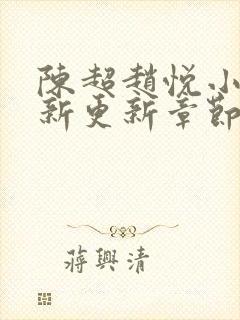 陳超趙悅小
新更新章節
蔣興清